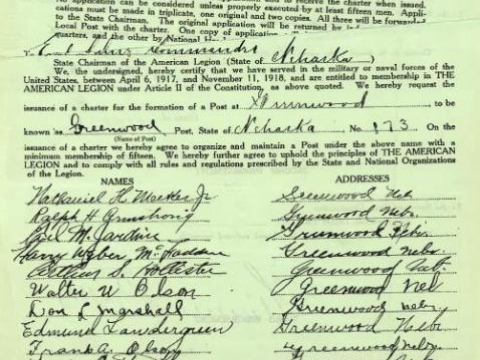 No application can be considered unless properly executed by at least fifteen men. Appli-
cations must be made in triplicate, one original and two copies. All three will be forward
to the State Chairman. The original application will be returned by
Local Post with the charter. One copy of application
quarters, and the other by
Commander
State Chairman of the American Legion (State of Nebraska
We, the undersigned, hereby certify that we have served in the military or naval forces of the
United States, between April 6, 1917, and November 11, 1918, and are entitled to membership in THE
AMERICAN LEGION under Article II of the Constitution, as above quoted. We hereby request
issuance of a charter for the formation of a Post at Greenwood to be
known as Greenwood Post, State of Nebraska No. 173. On the
(Name of Post)
issuance of a charter we hereby agree to organize and maintain a Post under the above name with a
minimum membership of fifteen. We hereby further agree to uphold the principles of THE AMERICAN
LEGION and to comply with all rules and regulations prescribed by the State and National Organizations
of the Legion.
NAMES ADDRESSES
Nathaniel H. Jr Greenwood Neb
Ralph H Armstrong Greenwood Nebr.
Earl M. Jardine Greenwood Nebr.
Harry Weber McFadden Greenwood Nebr
Arthur S. Hollister Greenwood Neb.
Walter W Olson Greenwood Neb
Don L Marshall Greenwood Neby
Edmund Landergreen Greenwood Nebr
Frank A. Olson Greenwood Nebr